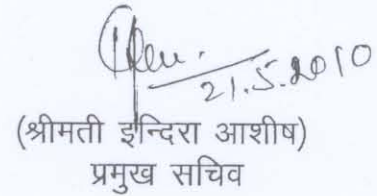 21.5.2010
(श्रीमती इन्दिरा आशीष)
प्रमुख सचिव